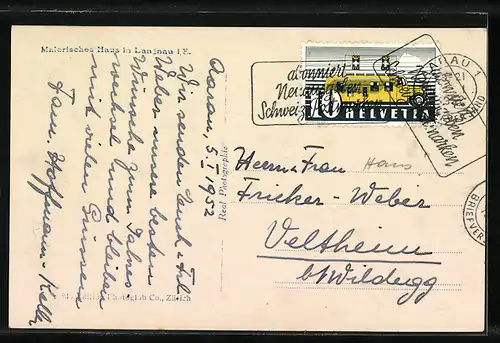 Malerisches Haus in Langnau i/E.
Aarau, 5. I 1952
Wir senden Euch & Frl.
Weber unsere besten
Wünsche zum Jahres-
wechsel und bleiben
mit vielen Grüssen
Fam. Hoffmann-Keller
Real Photographie
Photoglob Co., Zürich
abonniert
Neuausgaben
Schweiz
10 HELVETIA
AARAU 1
BRIEFVER
Herrn & Frau Hans
Fricker-Weber
Veltheim
b/Wildegg